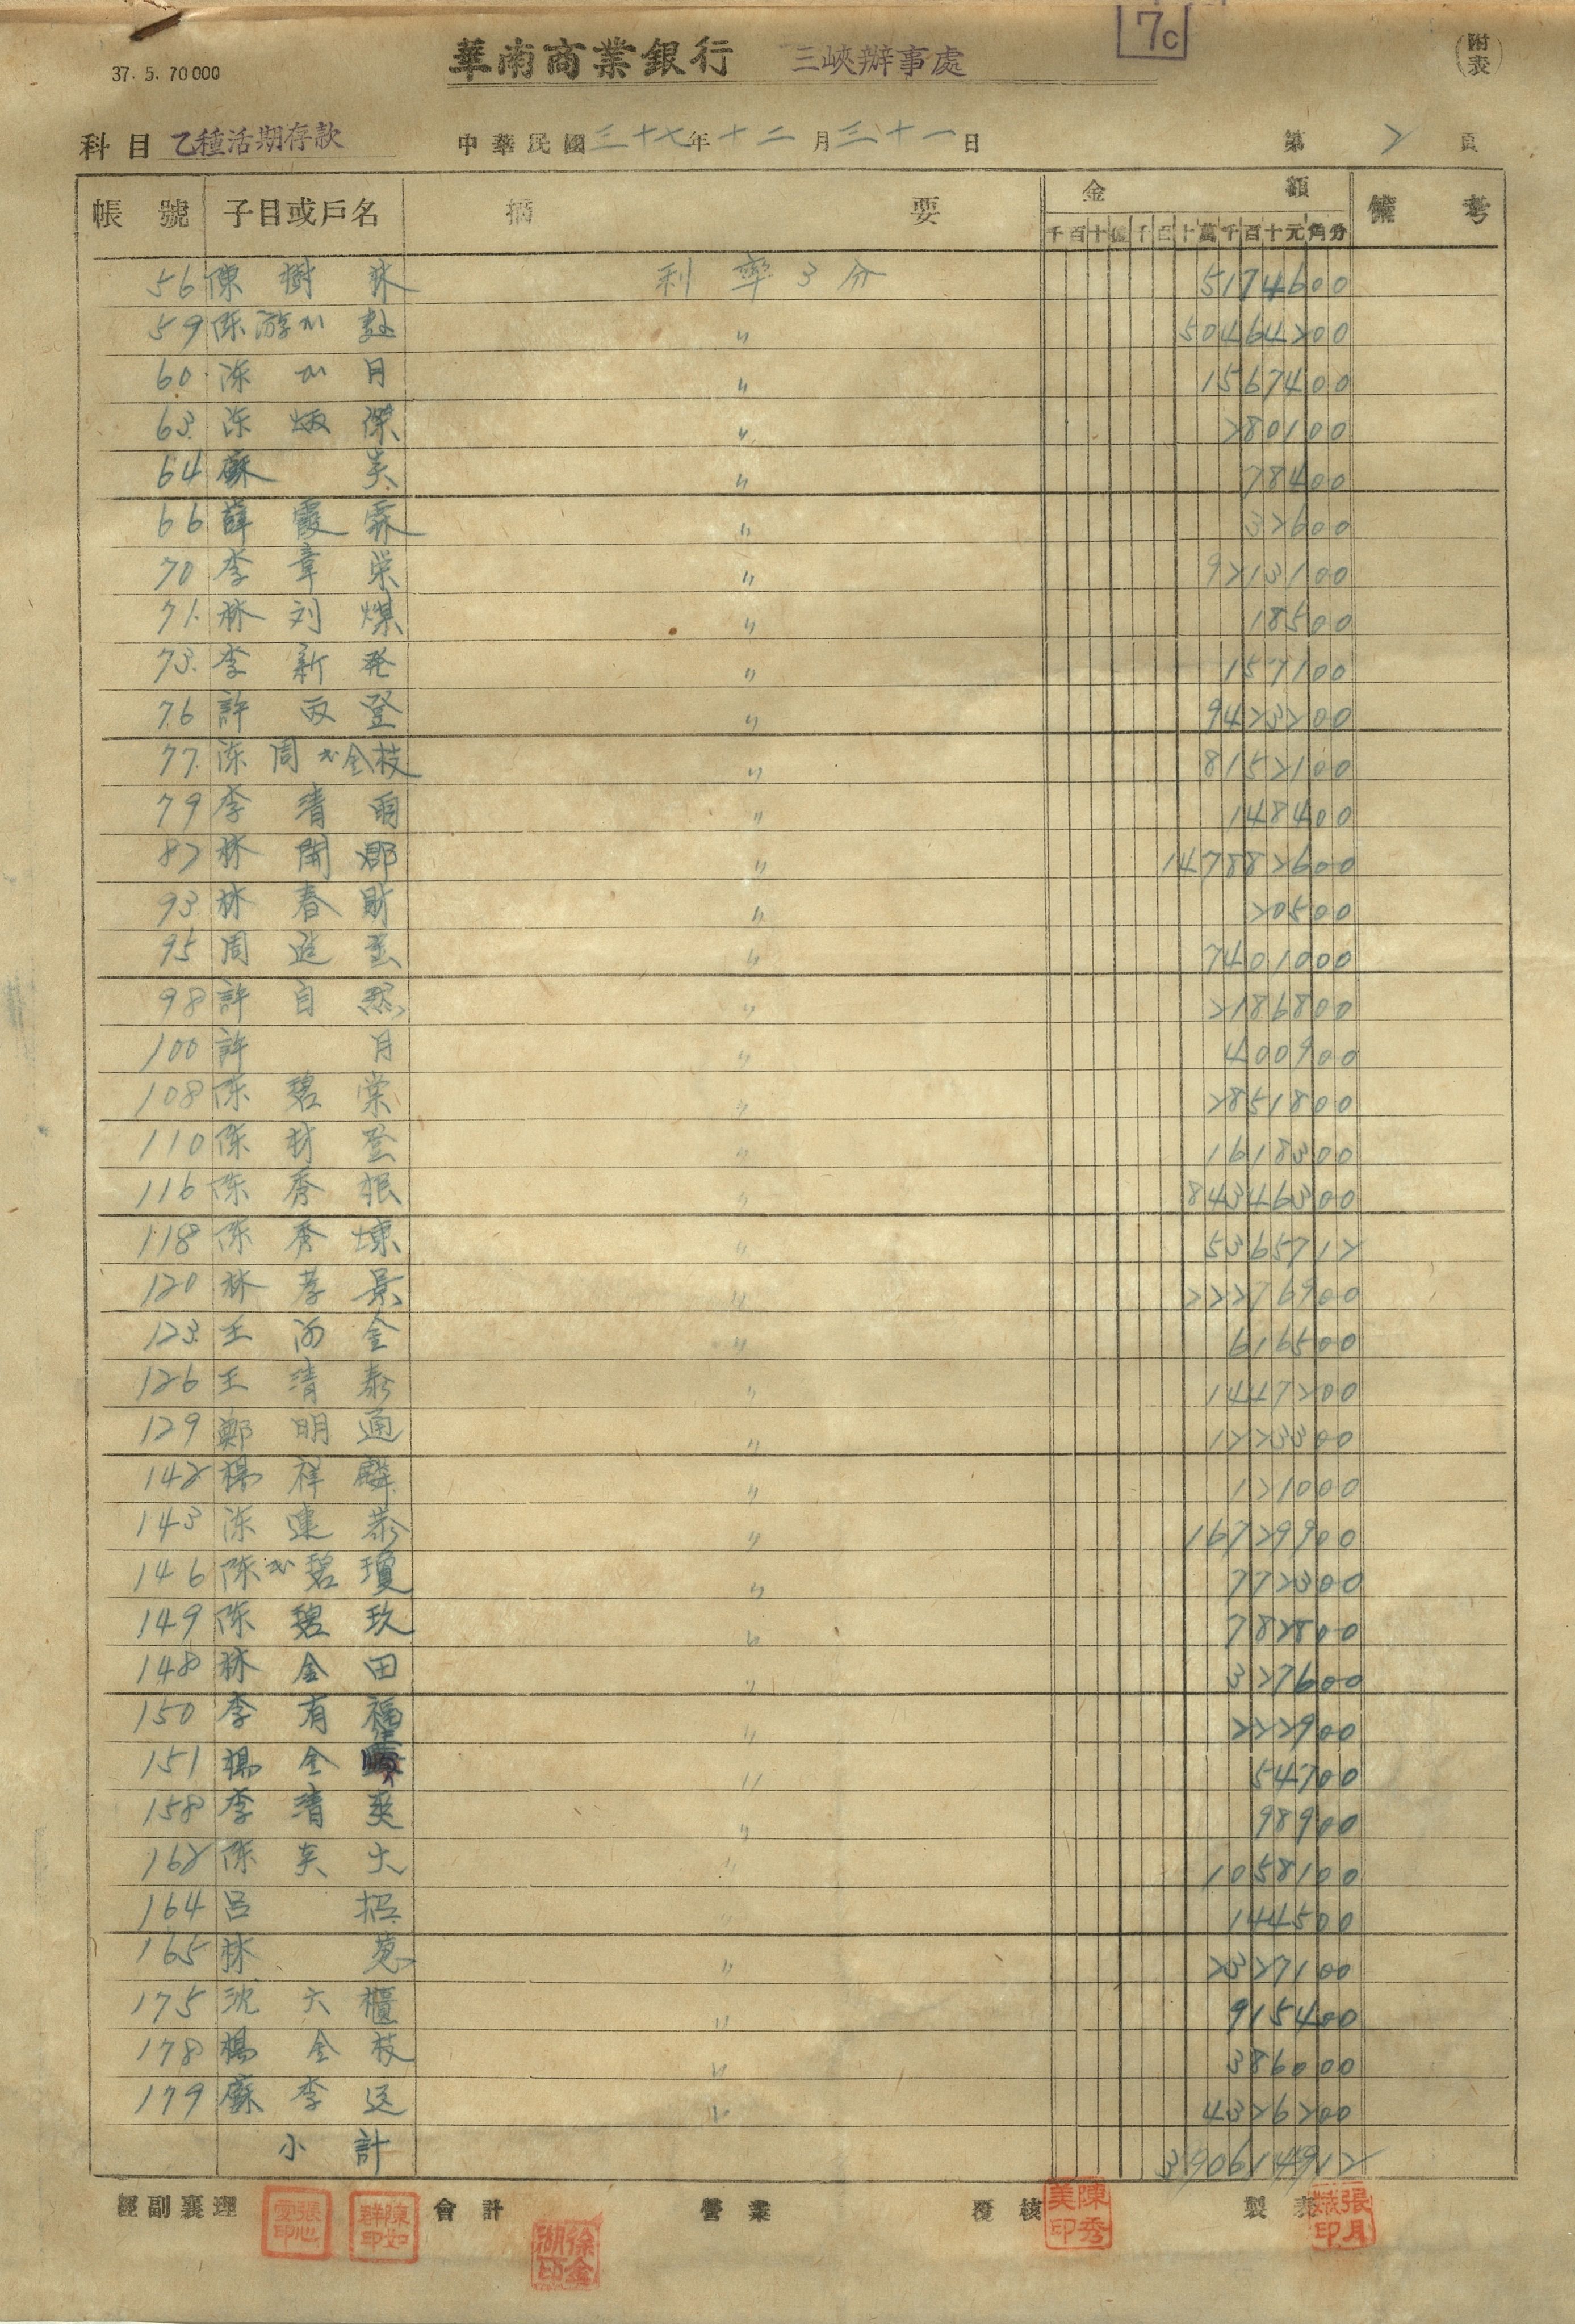 7c
37. 5. 70000
華南商業銀行 三峽辦事處 (附表)
科目 乙種活期存款 中華民國三十七年十二月三十一日 第 2 頁
帳號 子目或戶名 摘要 金額 備考
千百十億千百十萬千百十元角分
56 陳樹 利率3分 5174600
59 陈游 〃 50464200
60 陈 月 〃 1567400
63 陈炳傑 〃 280100
64 蘇 〃 78400
66 薛霞霖 〃 32600
70 李章栄 〃 9213100
71 林刘煤 〃 18500
73 李新発 〃 157100
76 許丙登 〃 9423200
77 陈周 金枝 〃 8152100
79 李清 〃 148400
82 林開郡 〃 147882600
93 林春財 〃 20500
95 周 〃 7401000
98 許自然 〃 2186800
100 許月 〃 400900
108 陈碧栄 〃 2851800
110 陈材登 〃 1618300
116 陈秀 〃 84346300
118 陈秀 〃 5365712
120 林景 〃 22276900
123 王 金 〃 616500
126 王清泰 〃 1447200
129 鄭明通 〃 1223300
142 楊祥麟 〃 121000
143 陈連恭 〃 16729900
146 陈 碧瓊 〃 772300
149 陈碧玖 〃 782800
148 林金田 〃 327600
150 李有福 〃 222900
151 楊金 〃 54700
158 李清 〃 98900
162 陈 〃 1058100
164 呂招 〃 144500
165 林 〃 2327100
175 沈六櫃 〃 915400
178 楊金枝 〃 386000
179 蘇李送 〃 4326200
小計 390614912
經副襄理 會計 營業 覆核 製表
陳如群印 徐金湖印 陳秀美印